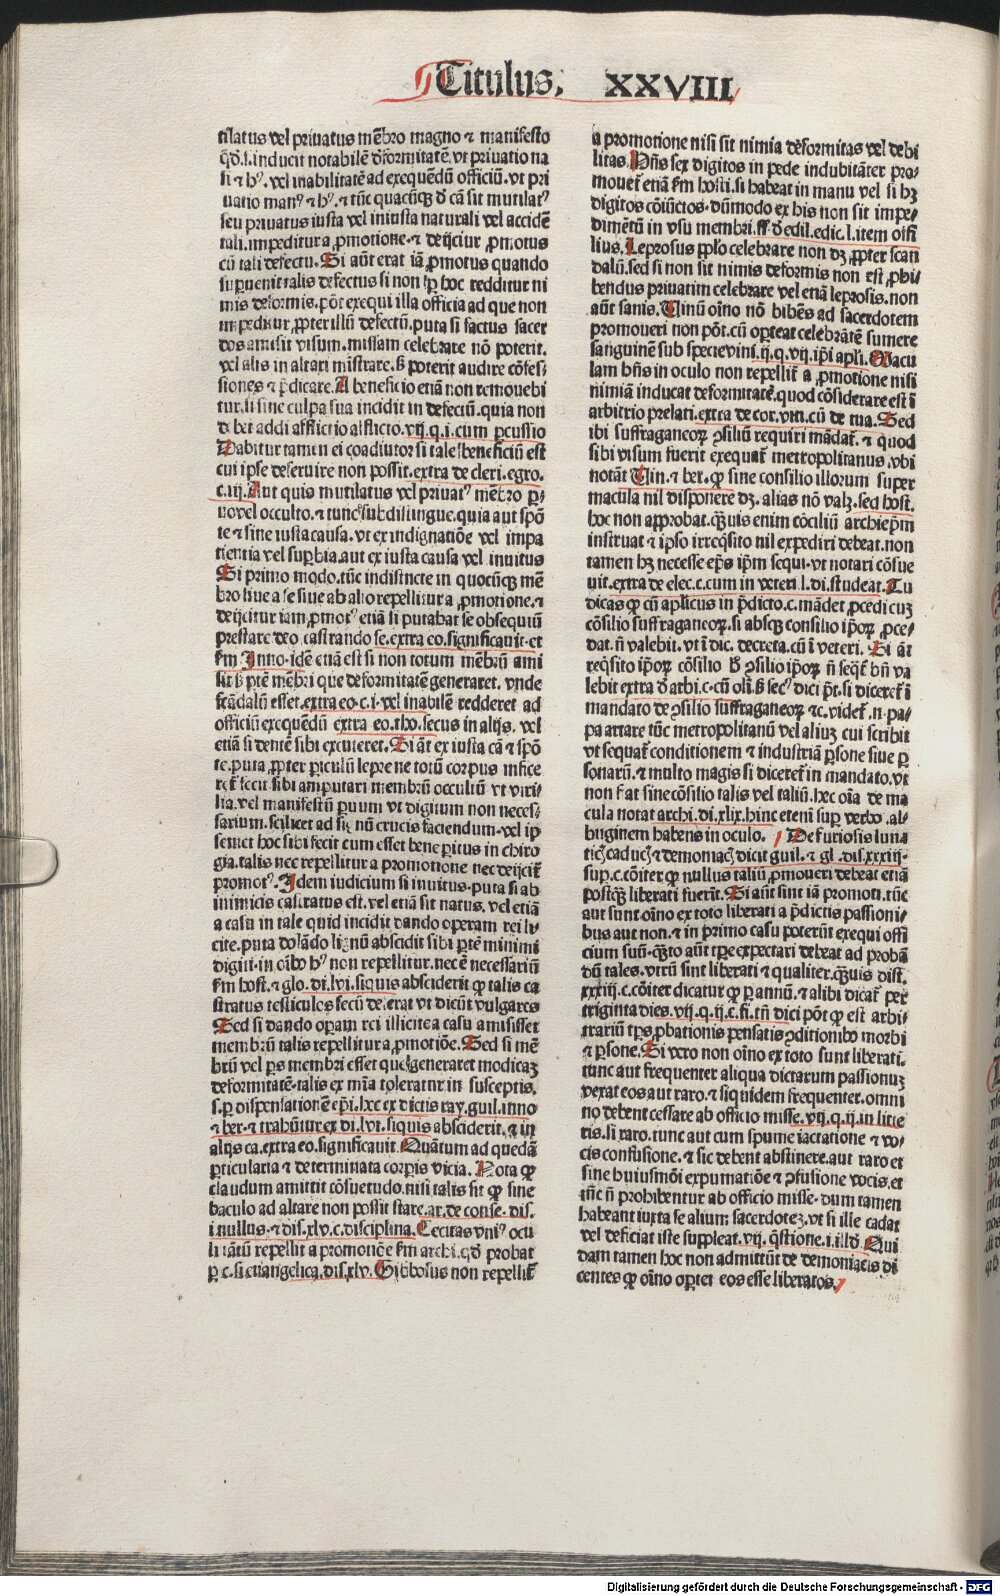 Titulus. XXVIII
tilatus vel priuatus mēbro magno ⁊ manifesto
q̄d.s.inducit notabilē d̄formitatē.vt priuatio na
si ⁊ hꝰ. vel inabilitatē ad exequēdū officiū.vt pri
uatio manꝰ ⁊ hꝰ. ⁊ tūc quacūqꝫ d̄ cā sit mutilatꝰ
seu priuatus iusta vel iniusta naturali vel accidē
tali.impeditur a ꝓmotione.⁊ deijcitur ꝓmotus
cū tali defectu. Si aūt erat iā ꝓmotus quando
suꝑuenit talis defectus si non sꝑ hoc redditur ni
mis deformis.pōt exequi illa officia ad que non
impeditur ꝓpter illū defectū.puta si factus sacer
dos amisit visum.missam celebrare nō poterit.
vel alijs in altari mīstrare.ß poterit audire cōfes⸗
siones ⁊ p̄dicare. A beneficio etiā non remouebi
tur.si sine culpa sua incidit in defectū.quia non
debet addi afflictio afflicto.vij.q.i.cum percussio
Dabitur tamen ei coadiutor si tale beneficiū est
cui ipse deseruire non possit.extra de cleri.egro.
c.iij. Aut quis mutilatus vel priuatꝰ mēbro ꝑ⸗
uo vel occulto.⁊ tunc subdistingue.quia aut spō
te ⁊ sine iusta causa.vt ex indignatiōe vel impa
tientia vel suꝑbia.aut ex iusta causa vel inuitus
Si primo modo.tūc indistincte in quocūqꝫ mē
bro siue a se siue ab alio repellitur a ꝓmotione.⁊
deijcitur iam ꝓmotꝰ etiā si putabat se obsequiū
prestare deo castrando se.extra eo.significauit.et
fm Inno.idē etiā est si non totum mēbrū ami
sit ß ptē mēbri que deformitatē generaret. vnde
scādalū esset.extra eo.c.i.vel inabilē redderet ad
officiū exequēdū extra eo.tho.secus in alijs. vel
etiā si dentē sibi excuteret. Si āt ex iusta cā ⁊ spō
te.puta ꝓpter ꝑiculū lepre ne totū corpus infice
ret̄ fecit sibi amputari membrū occultū vt viri⸗
lia.vel manifestū ꝑuum vt digitum non neces⸗
sarium.scilicet ad signū crucis faciendum.vel ip
semet hoc sibi fecit cum esset bene ꝑitus in chiro
gia.talis nec repellitur a promotione nec deijcit̄
promotꝰ. Idem iudicium si inuitus.puta si ab
inimicis castratus est.vel etiā sit natus.vel etiā
a casu in tale quid incidit dando operam rei li⸗
cite.puta dolādo lignū abscidit sibi ptē minimi
digiti.in oībꝰ hꝰ non repellitur.nec ē necessariū
fm host.⁊ glo.di.lvi.siquis absciderit qꝫ talis ca
stratus testiculos secū deferat vt dicūt vulgares
Sed si dando operam rei illicite a casu amisisset
membrū talis repellitur a ꝓmotiōe. Sed si mē
brū vel ps membri esset que generaret modicaꝫ
deformitatē.talis ex mīa toleratur in susceptis.
s.ꝑ dispensationē epī.hec ex dictis ray.guil.inno
⁊ ber.⁊ trahūtur ex di.lvi.siquis absciderit.⁊ in
alijs ca.extra eo.significauit. Quātum ad quedā
ꝑticularia ⁊ determinata corꝑis vicia. Nota qꝫ
claudum amittit cōsuetudo.nisi talis sit qꝫ sine
baculo ad altare non possit stare.ar.de conse. dis.
i.nullus.⁊ dis.xlv.c.disciplina. Cecitas vniꝰ ocu
li tātū repellit a promotiōe fm archi.qd̄ probat
ꝑ c.si euangelica.dis.xlv. Gibbosus non repellit̄
a promotione nisi sit nimia deformitas vel debi
litas. Hn̄s sex digitos in pede indubitāter pro⸗
mouet̄ etiā fm hosti.si habeat in manu vel si hꝫ
digitos cōiūctos.dūmodo ex his non sit impe⸗
dimētū in vsu membri.ff.d̄ edil.edic.l.item ofi
lius. Leprosus pplo celebrare non dꝫ ꝓpter scan
dalū.sed si non sit nimis deformis non est ꝓhi⸗
bendus priuatim celebrare vel etiā leprosis.non
aūt sanis. Vinū oīno nō bibēs ad sacerdotem
promoueri non pōt.cū oporteat celebrātē sumere
sanguinē sub specie vini.ij.q.vij.ip̄i apli. Macu
lam hn̄s in oculo non repellit̄ a ꝓmotione nisi
nimiā inducat deformitatē.quod cōsiderare est ī
arbitrio prelati.extra de cor.viti.cū de tua. Sed
ibi suffraganeoꝝ ꝯsiliū requiri mādat̄. ⁊ quod
sibi visum fuerit exequat̄ metropolitanus.vbi
notāt Vin.⁊ ber. qꝫ sine consilio illorum super
macula nil disponere dꝫ. alias nō valꝫ.sed host.
hoc non approbat.q̄uis enim cōciliū archiep̄m
instruat ⁊ ipso irreq̄sito nil expediri debeat.non
tamen hꝫ necesse ep̄s ip̄m sequi.vt notari cōsue
uit.extra de elec.c.cum in veteri l.di.studeat. Tu
dicas qꝫ cū aplicus in p̄dicto.c.mādet ꝓcedi cuꝫ
cōsilio suffraganeoꝝ.si absqꝫ consilio ip̄oꝝ ꝓce⸗
dat.n̄ valebit.vt ī dic. decreta.cū ī veteri. Si āt
reqsito ip̄oꝝ cōsilio ß ꝯsilio ip̄oꝝ n̄ seqt̄ bn̄ va
lebit extra d̄ arbi.c.cū oli.ß secꝰ dici pt̄.si diceret̄ ī
mandato de ꝯsilio suffraganeoꝝ ⁊c.videt̄.n.pa⸗
pa artare tūc metropolitanū vel aliuꝫ cui scribit
vt sequat̄ conditionem ⁊ industriā ꝑsone siue ꝑ
sonarū.⁊ multo magis si diceret̄ in mandato.vt
non fiat sine cōsilio talis vel taliū.hec oīa de ma
cula notat archi.di.xlix.hinc etenī suꝑ verbo .al⸗
buginem habens in oculo. De furiosis luna
ticꝭ caducꝭ ⁊ demoniacꝭ dicit guil.⁊ gl .dis.xxxiij.
suꝑ.c.cōiter qꝫ nullus taliū ꝓmoueri debeat etiā
postqꝫ liberati fuerīt. Si aūt sint iā promoti.tūc
aut sunt oīno ex toto liberati a p̄dictis passioni⸗
bus aut non.⁊ in primo casu poterūt exequi offi
cium suū.q̄to aūt tꝑe expectari debeat ad probā
dū tales.vtrū sint liberati ⁊ qualiter.q̄uis dist.
xxxiij.c.cōiter dicatur qꝫ ꝑ annū.⁊ alibi dicat̄ per
triginta dies.vij.q.ij.c.fi.tn̄ dici pōt qꝫ est arbi⸗
trariū tꝑs ꝓbationis pensatis ꝯditionibꝰ morbi
⁊ ꝑsone. Si vero non oīno ex toto sunt liberati.
tunc aut frequenter aliqua dictarum passionuꝫ
vexat eos aut raro.⁊ siquidem frequenter.omni
no debent cessare ab officio misse.vij.q.ij.in litte
ris.si raro.tunc aut cum spume iactatione ⁊ vo⸗
cis confusione.⁊ sic debent abstinere.aut raro et
sine huiusmōi expumatiōe ⁊ ꝯfusione vocis.et
tūc n̄ prohibentur ab officio misse.dum tamen
habeant iuxta se alium sacerdoteꝫ.vt si ille cadat
vel deficiat iste suppleat.vij. q̄stione.i.illd̄. Qui
dam tamen hoc non admittūt de demoniacis di
centes qꝫ oīno oportet eos esse liberatos.
Digitalisierung gefördert durch die Deutsche Forschungsgemeinschaft - DFG